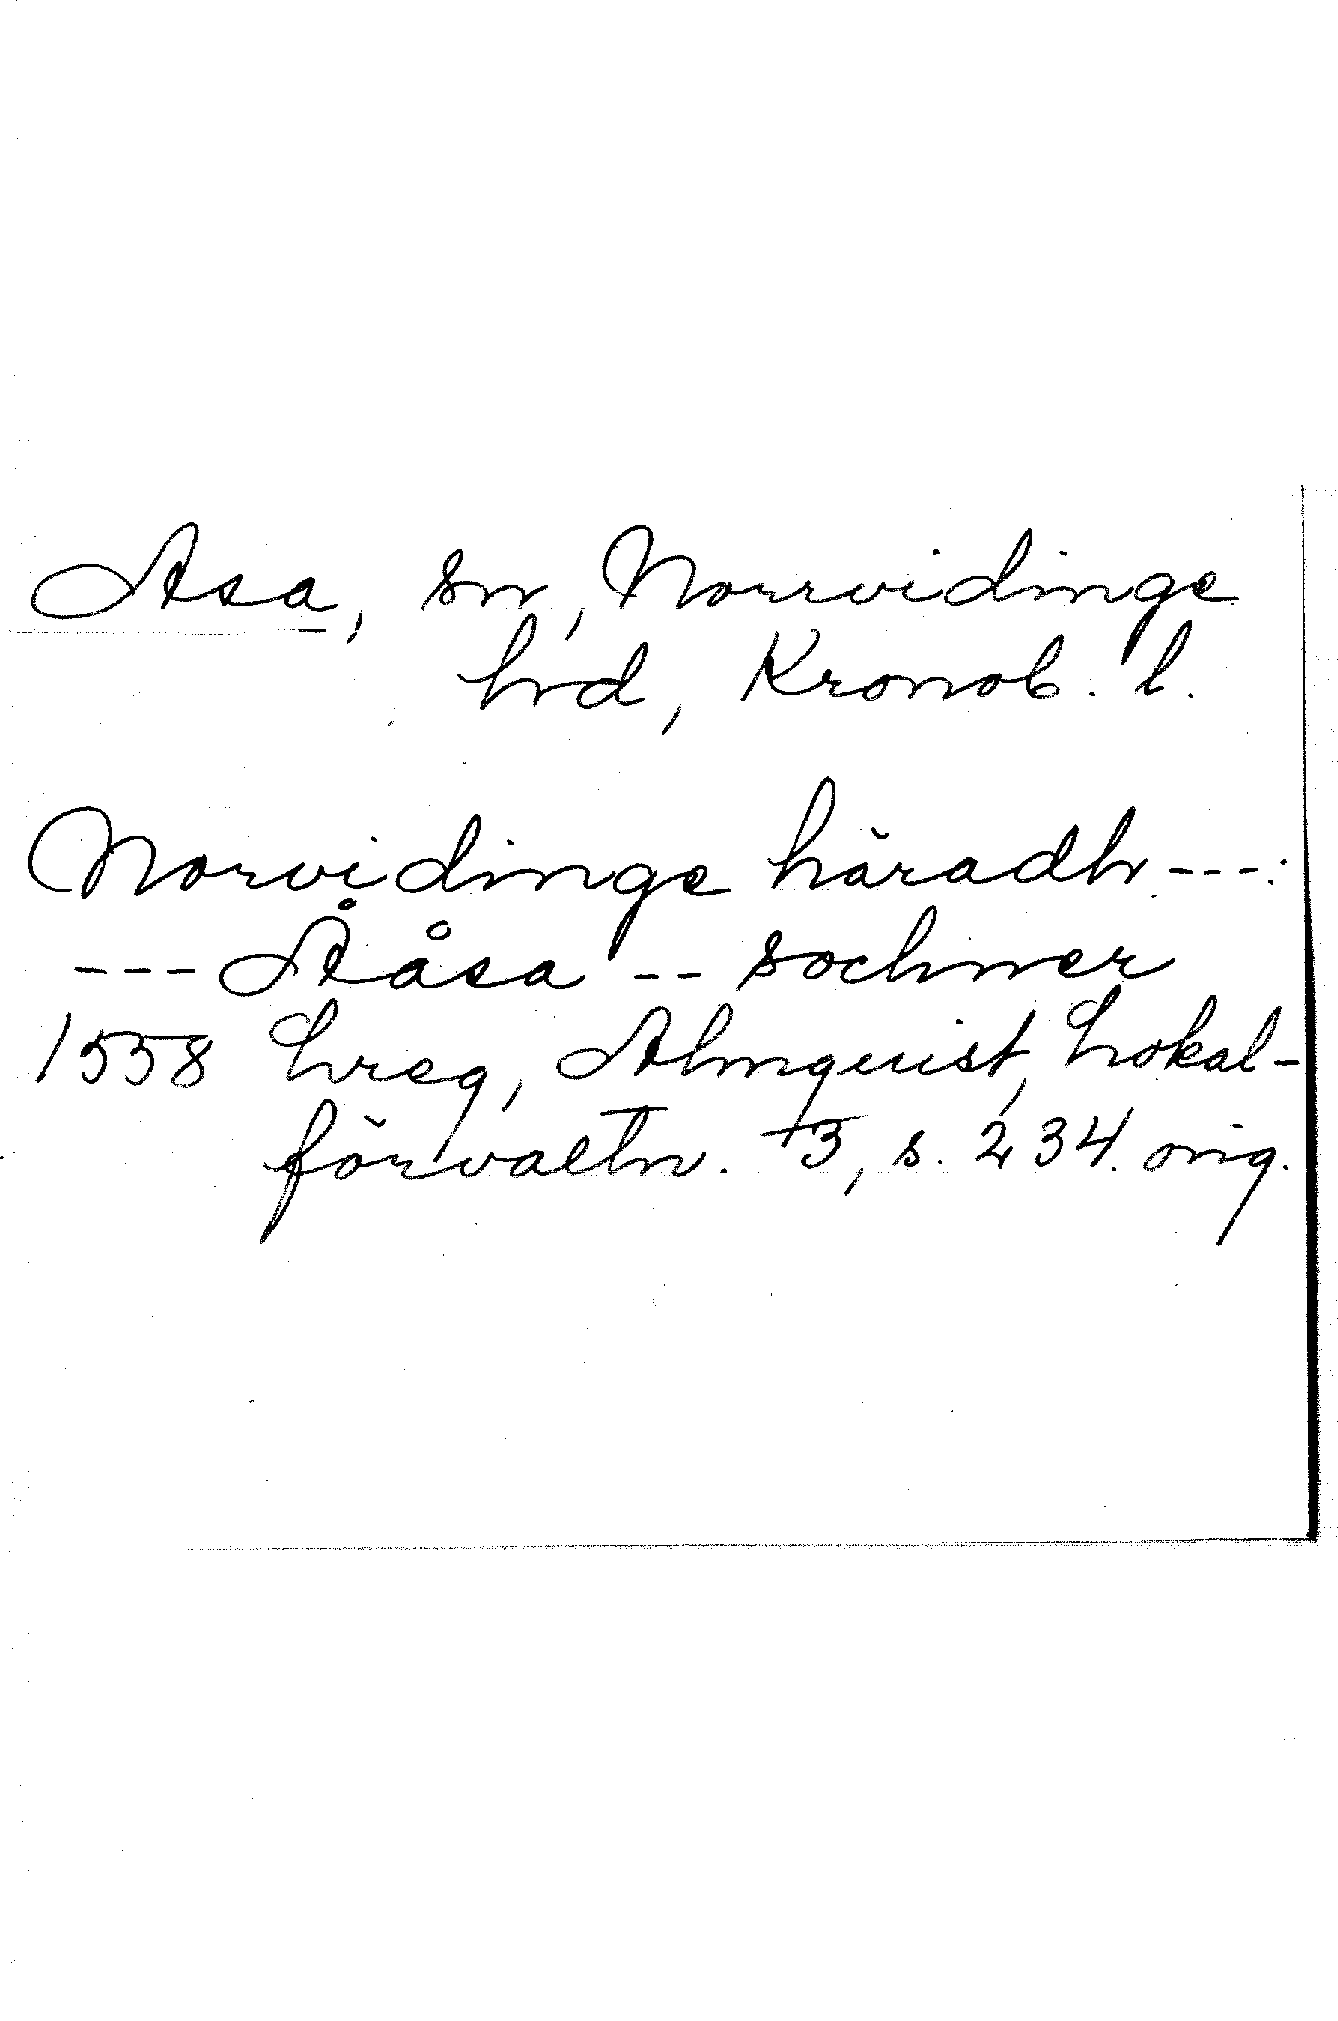 Asa, sn, Norrvidinge
hrd, Kronob. l.
Norvidinge häradh ---:
--- Ååsa -- sochner
1558 hreg, Almquist, Lokal-
förvaltn. 3, s. 234. orig.